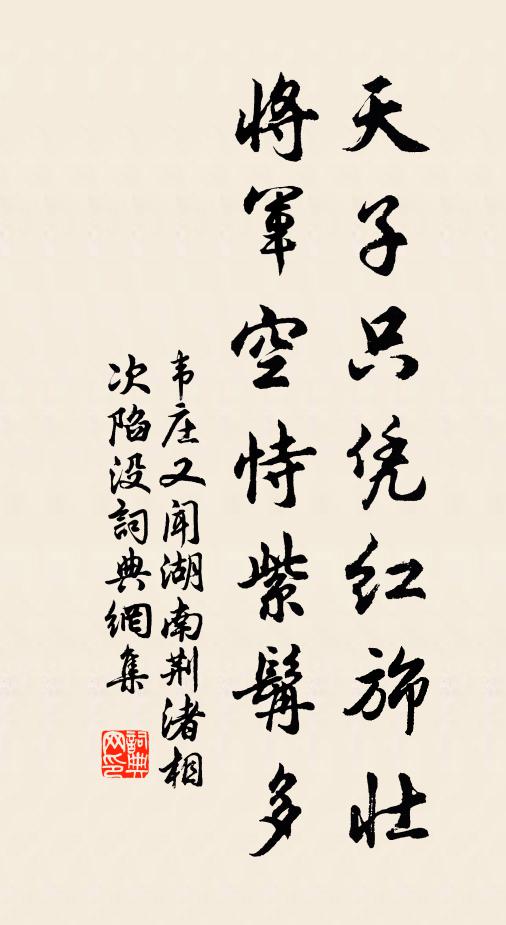 天子只凭红旆壮
將軍空恃紫髯多
韦庄又闻湖南荆渚相
次陷没詞典網集
詞典网印